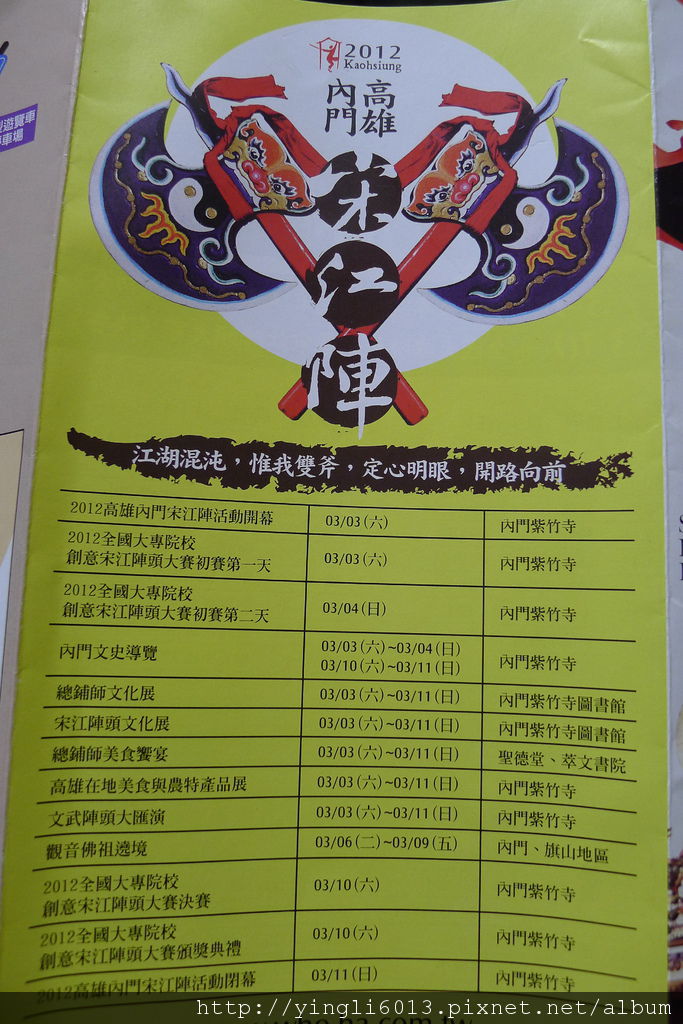 2012
Kaohsiung
高雄
內門
宋
江
陣
江湖混沌，惟我雙斧，定心明眼，開路向前
2012高雄內門宋江陣活動開幕 03/03(六) 內門紫竹寺
2012全國大專院校
創意宋江陣頭大賽初賽第一天 03/03(六) 內門紫竹寺
2012全國大專院校
創意宋江陣頭大賽初賽第二天 03/04(日) 內門紫竹寺
內門文史導覽 03/03(六)~03/04(日) 內門紫竹寺
03/10(六)~03/11(日)
總鋪師文化展 03/03(六)~03/11(日) 內門紫竹寺圖書館
宋江陣頭文化展 03/03(六)~03/11(日) 內門紫竹寺圖書館
總鋪師美食饗宴 03/03(六)~03/11(日) 聖德堂、萃文書院
高雄在地美食與農特產品展 03/03(六)~03/11(日) 內門紫竹寺
文武陣頭大匯演 03/03(六)~03/11(日) 內門紫竹寺
觀音佛祖遶境 03/06(二)~03/09(五) 內門、旗山地區
2012全國大專院校
創意宋江陣頭大賽決賽 03/10(六) 內門紫竹寺
2012全國大專院校
創意宋江陣頭大賽頒獎典禮 03/10(六) 內門紫竹寺
2012高雄內門宋江陣活動閉幕 03/11(日) 內門紫竹寺
遊覽車
車場
http://yingli6013.pixnet.net/album